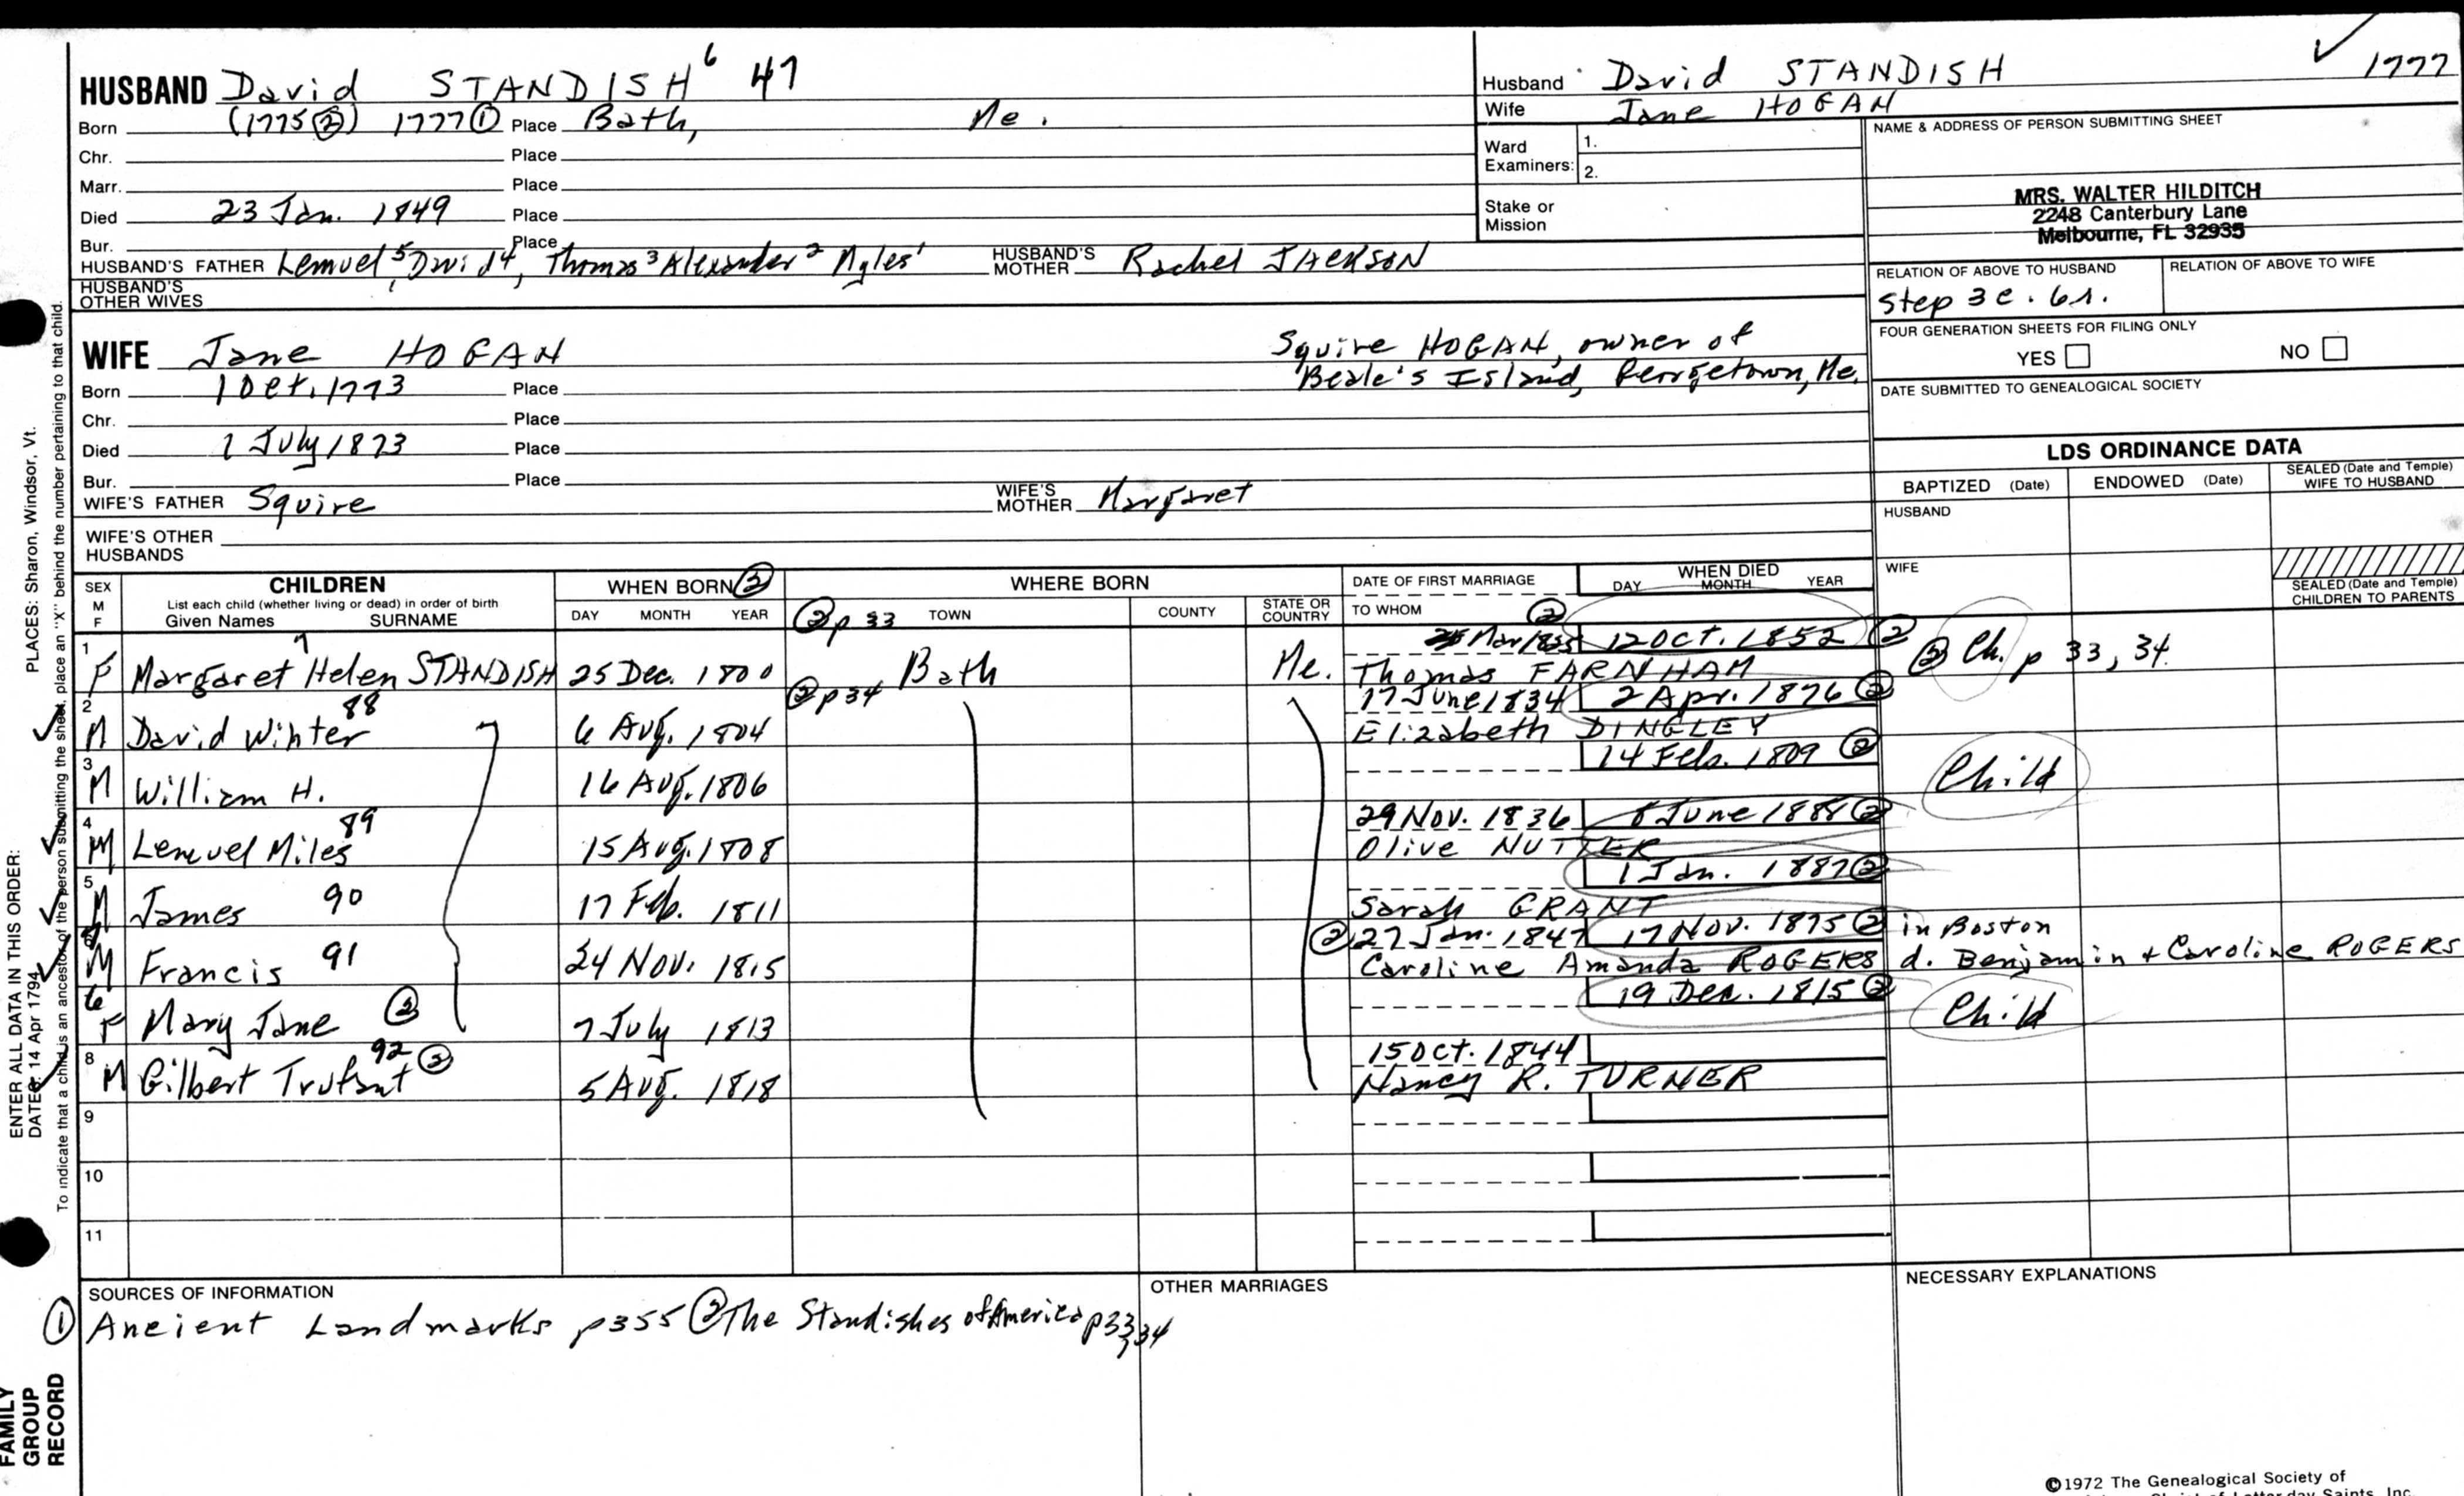 HUSBAND David STANDISH 6 47
Born (1775 ②) 1777 ① Place Bath, Me.
Chr. Place
Marr. Place
Died 23 Jan. 1849 Place
Bur. Place
HUSBAND'S FATHER Lemuel 5, David 4, Thomas 3 Alexander 2 Myles 1 HUSBAND'S MOTHER Rachel JACKSON
HUSBAND'S OTHER WIVES
Husband David STANDISH 1777
Wife Jane HOGAN
Ward Examiners: 1.
2.
Stake or Mission
NAME & ADDRESS OF PERSON SUBMITTING SHEET
MRS. WALTER HILDITCH
2248 Canterbury Lane
Melbourne, FL 32935
RELATION OF ABOVE TO HUSBAND RELATION OF ABOVE TO WIFE
Step 3c. 6r.
FOUR GENERATION SHEETS FOR FILING ONLY
YES NO
DATE SUBMITTED TO GENEALOGICAL SOCIETY
WIFE Jane HOGAN Squire HOGAN, owner of
Beale's Island, Georgetown, Me.
Born 1 Oct. 1773 Place
Chr. Place
Died 1 July 1873 Place
Bur. Place
WIFE'S FATHER Squire WIFE'S MOTHER Margaret
WIFE'S OTHER HUSBANDS
LDS ORDINANCE DATA
BAPTIZED (Date) ENDOWED (Date) SEALED (Date and Temple) WIFE TO HUSBAND
HUSBAND
WIFE
SEALED (Date and Temple) CHILDREN TO PARENTS
SEX M F CHILDREN List each child (whether living or dead) in order of birth Given Names SURNAME
WHEN BORN ② DAY MONTH YEAR
WHERE BORN ② p 33 TOWN COUNTY STATE OR COUNTRY
DATE OF FIRST MARRIAGE TO WHOM ②
WHEN DIED DAY MONTH YEAR
1 F Margaret 7 Helen STANDISH 25 Dec. 1800 Bath Me. Mar 1835 12 Oct. 1852 ② Thomas FARNHAM ② Ch. p 33, 34.
2 M David Winter 88 6 Aug. 1804 ② p 34 17 June 1834 2 Apr. 1876 ② Elizabeth DINGLEY
3 M William H. 16 Aug. 1806 14 Feb. 1809 ② Child
4 M Lemuel Miles 89 15 Aug. 1808 29 Nov. 1836 8 June 1881 ② Olive NUTTER
5 M James 90 17 Feb. 1811 1 Jan. 1887 ② Sarah GRANT
M Francis 91 24 Nov. 1815 ② 27 Jan. 1847 17 Nov. 1875 ② in Boston
Caroline Amanda ROGERS d. Benjamin + Caroline ROGERS
6 F Mary Jane ② 7 July 1813 19 Dec. 1815 ② Child
8 M Gilbert Trufant 92 ② 5 Aug. 1818 15 Oct. 1844 Nancy R. TURNER
9
10
11
SOURCES OF INFORMATION
① Ancient Landmarks p355 ② The Standishes of America p33, 34
OTHER MARRIAGES
NECESSARY EXPLANATIONS
©1972 The Genealogical Society of
ENTER ALL DATA IN THIS ORDER:
DATES: 14 Apr 1794
PLACES: Sharon, Windsor, Vt.
To indicate that a child is an ancestor of the person submitting the sheet, place an "X" behind the number pertaining to that child.
FAMILY
GROUP
RECORD